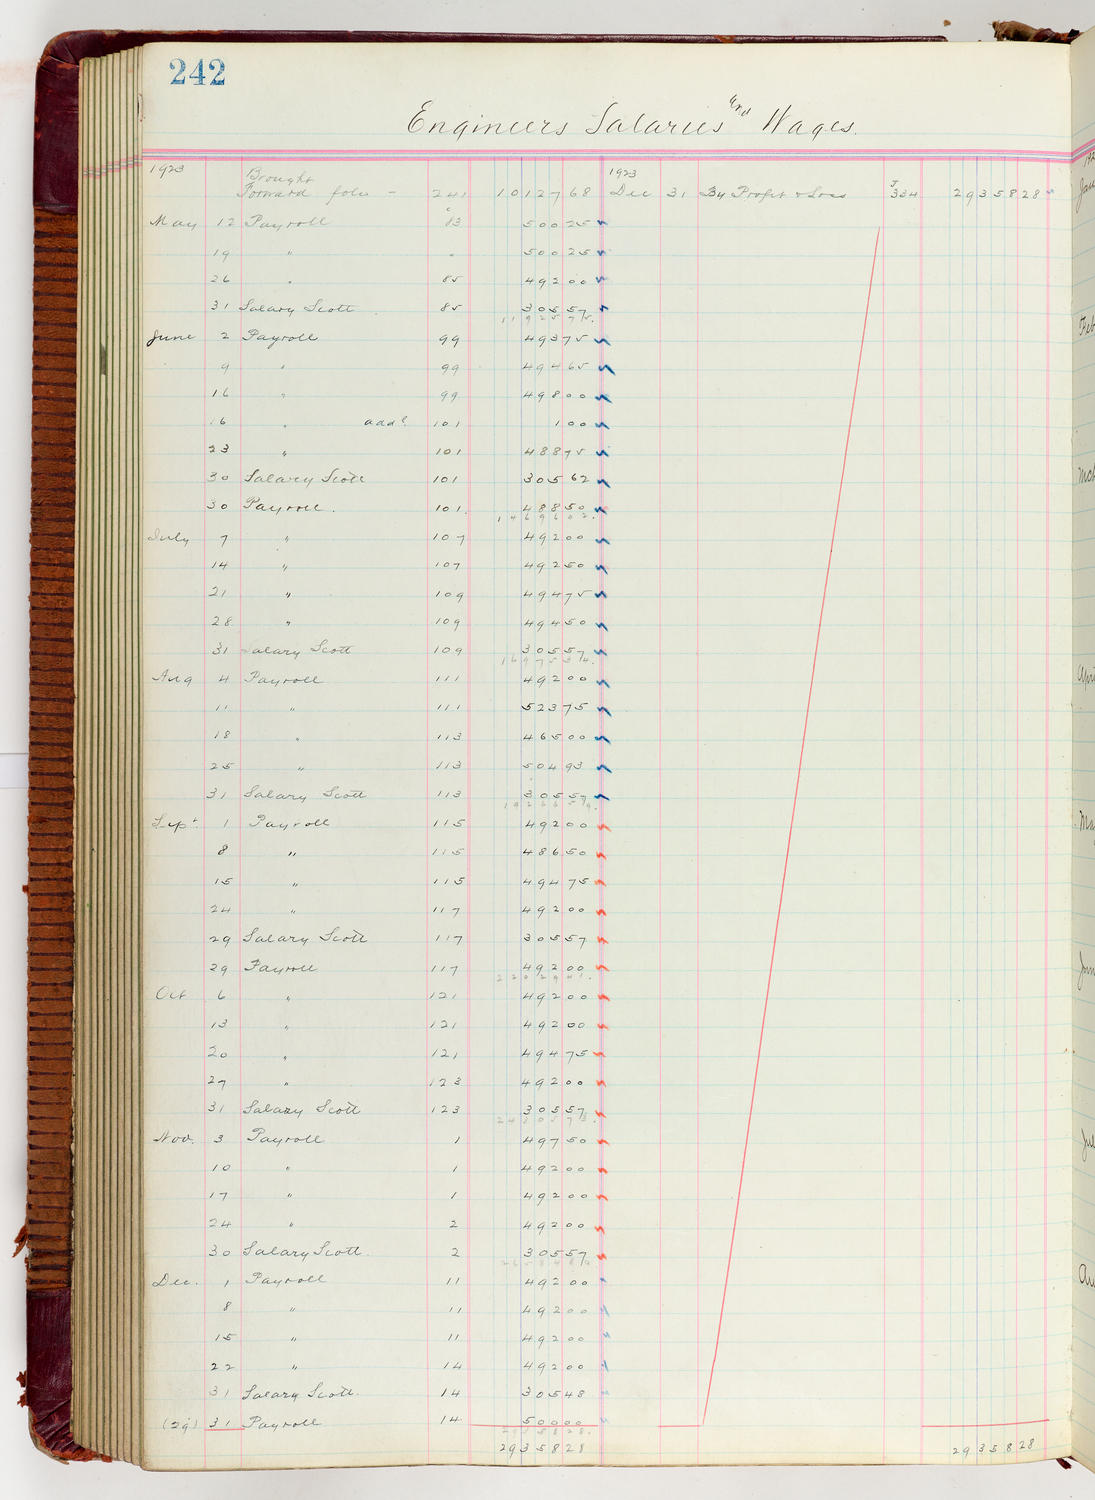 242
Engineers Salaries and Wages.
1923 Brought 1923
Forward folio - 241 1012768 Dec 31 By Profit & Loss J 334 2935828
May 12 Payroll c 83 50025
19 " " 50025
26 " 85 49200
31 Salary Scott 85 30557
1192575.
June 2 Payroll 99 49375
9 " 99 49465
16 " 99 49800
16 " add? 101 100
23 " 101 48875
30 Salary Scott 101 30562
30 Payroll. 101. 48850
1469602.
July 7 " 107 49200
14 " 107 49250
21 " 109 49475
28 " 109 49450
31 Salary Scott 109 30557
1697534.
Aug 4 Payroll 111 49200
11 " 111 52375
18 " 113 46500
25 " 113 50493
31 Salary Scott 113 30557
1926659.
Sept 1 Payroll 115 49200
8 " 115 48650
15 " 115 49475
24 " 117 49200
29 Salary Scott 117 30557
29 Payroll 117 49200
2202941.
Oct 6 " 121 49200
13 " 121 49200
20 " 121 49475
27 " 123 49200
31 Salary Scott 123 30557
2430573.
Nov. 3 Payroll 1 49750
10 " 1 49200
17 " 1 49200
24 " 2 49200
30 Salary Scott. 2 30557
2658480
Dec. 1 Payroll 11 49200
8 " 11 49200
15 " 11 49200
22 " 14 49200
31 Salary Scott. 14 30548
(29) 31 Payroll 14 50000
2935828.
2935828 2935828